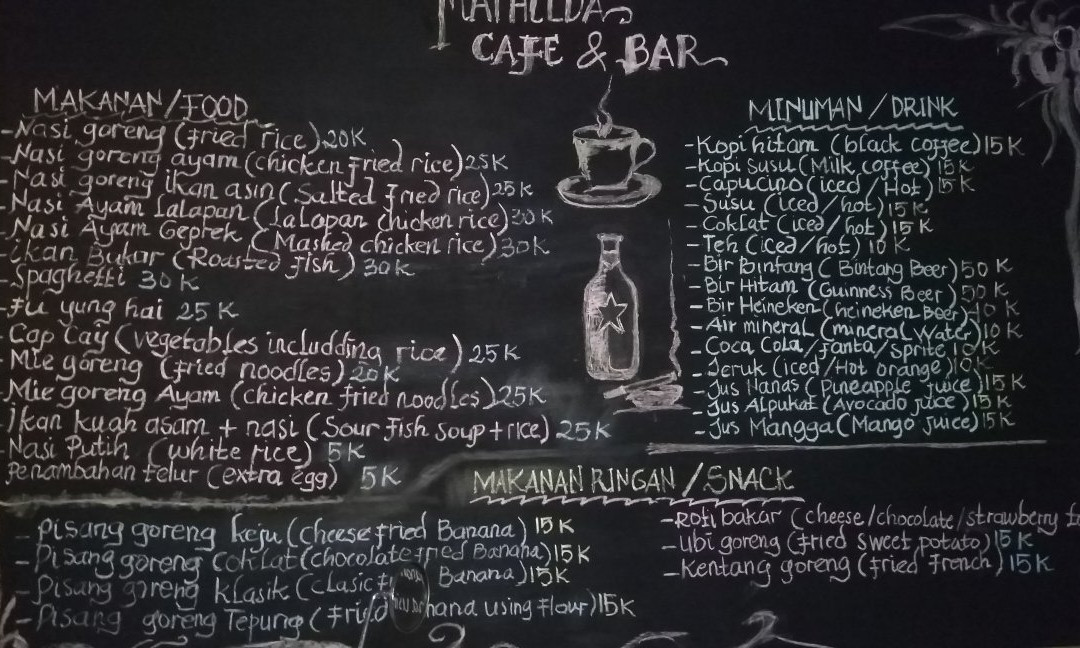 MATHILDA
CAFE & BAR
MAKANAN/FOOD
-Nasi goreng (fried rice) 20K
-Nasi goreng ayam (chicken fried rice) 25K
-Nasi goreng ikan asin (Salted fried rice) 25K
-Nasi Ayam Lalapan (Lalapan chicken rice) 30K
-Nasi Ayam Geprek (Mashed chicken rice) 30K
-Ikan Bakar (Roasted Fish) 30K
-Spaghetti 30K
-Fu yung hai 25K
Cap Cay (vegetables includding rice) 25K
Mie goreng (fried noodles) 20K
-Mie goreng Ayam (chicken fried noodles) 25K
-Ikan kuah asam + nasi (Sour Fish soup + rice) 25K
-Nasi Putih (white rice) 5K
Penambahan telur (extra egg) 5K
MINUMAN / DRINK
-Kopi hitam (black coffee) 15K
-Kopi Susu (Milk coffee) 15K
-Capucino (iced / Hot) 15K
-Susu (iced / hot) 15K
-Coklat (iced / hot) 15K
-Teh (iced / hot) 10K
-Bir Bintang (Bintang Beer) 50K
-Bir Hitam (Guinness Beer) 50K
-Bir Heineken (heineken Beer)
-Air mineral (mineral Water) 10K
-Coca Cola / Fanta / Sprite 10K
-Jeruk (iced / Hot orange) 10K
-Jus Nanas (Pineapple juice) 15K
-Jus Alpukat (Avocado juice) 15K
-Jus Mangga (Mango juice) 15K
MAKANAN RINGAN / SNACK
-Pisang goreng keju (cheese fried Banana) 15K
-Pisang goreng Coklat (chocolate fried Banana) 15K
-Pisang goreng klasik (Clasic Banana) 15K
-Pisang goreng Tepung (Fried using Flour) 15K
-Roti bakar (cheese/chocolate/strawberry
-Ubi goreng (fried sweet potato) 15K
-Kentang goreng (fried French) 15K